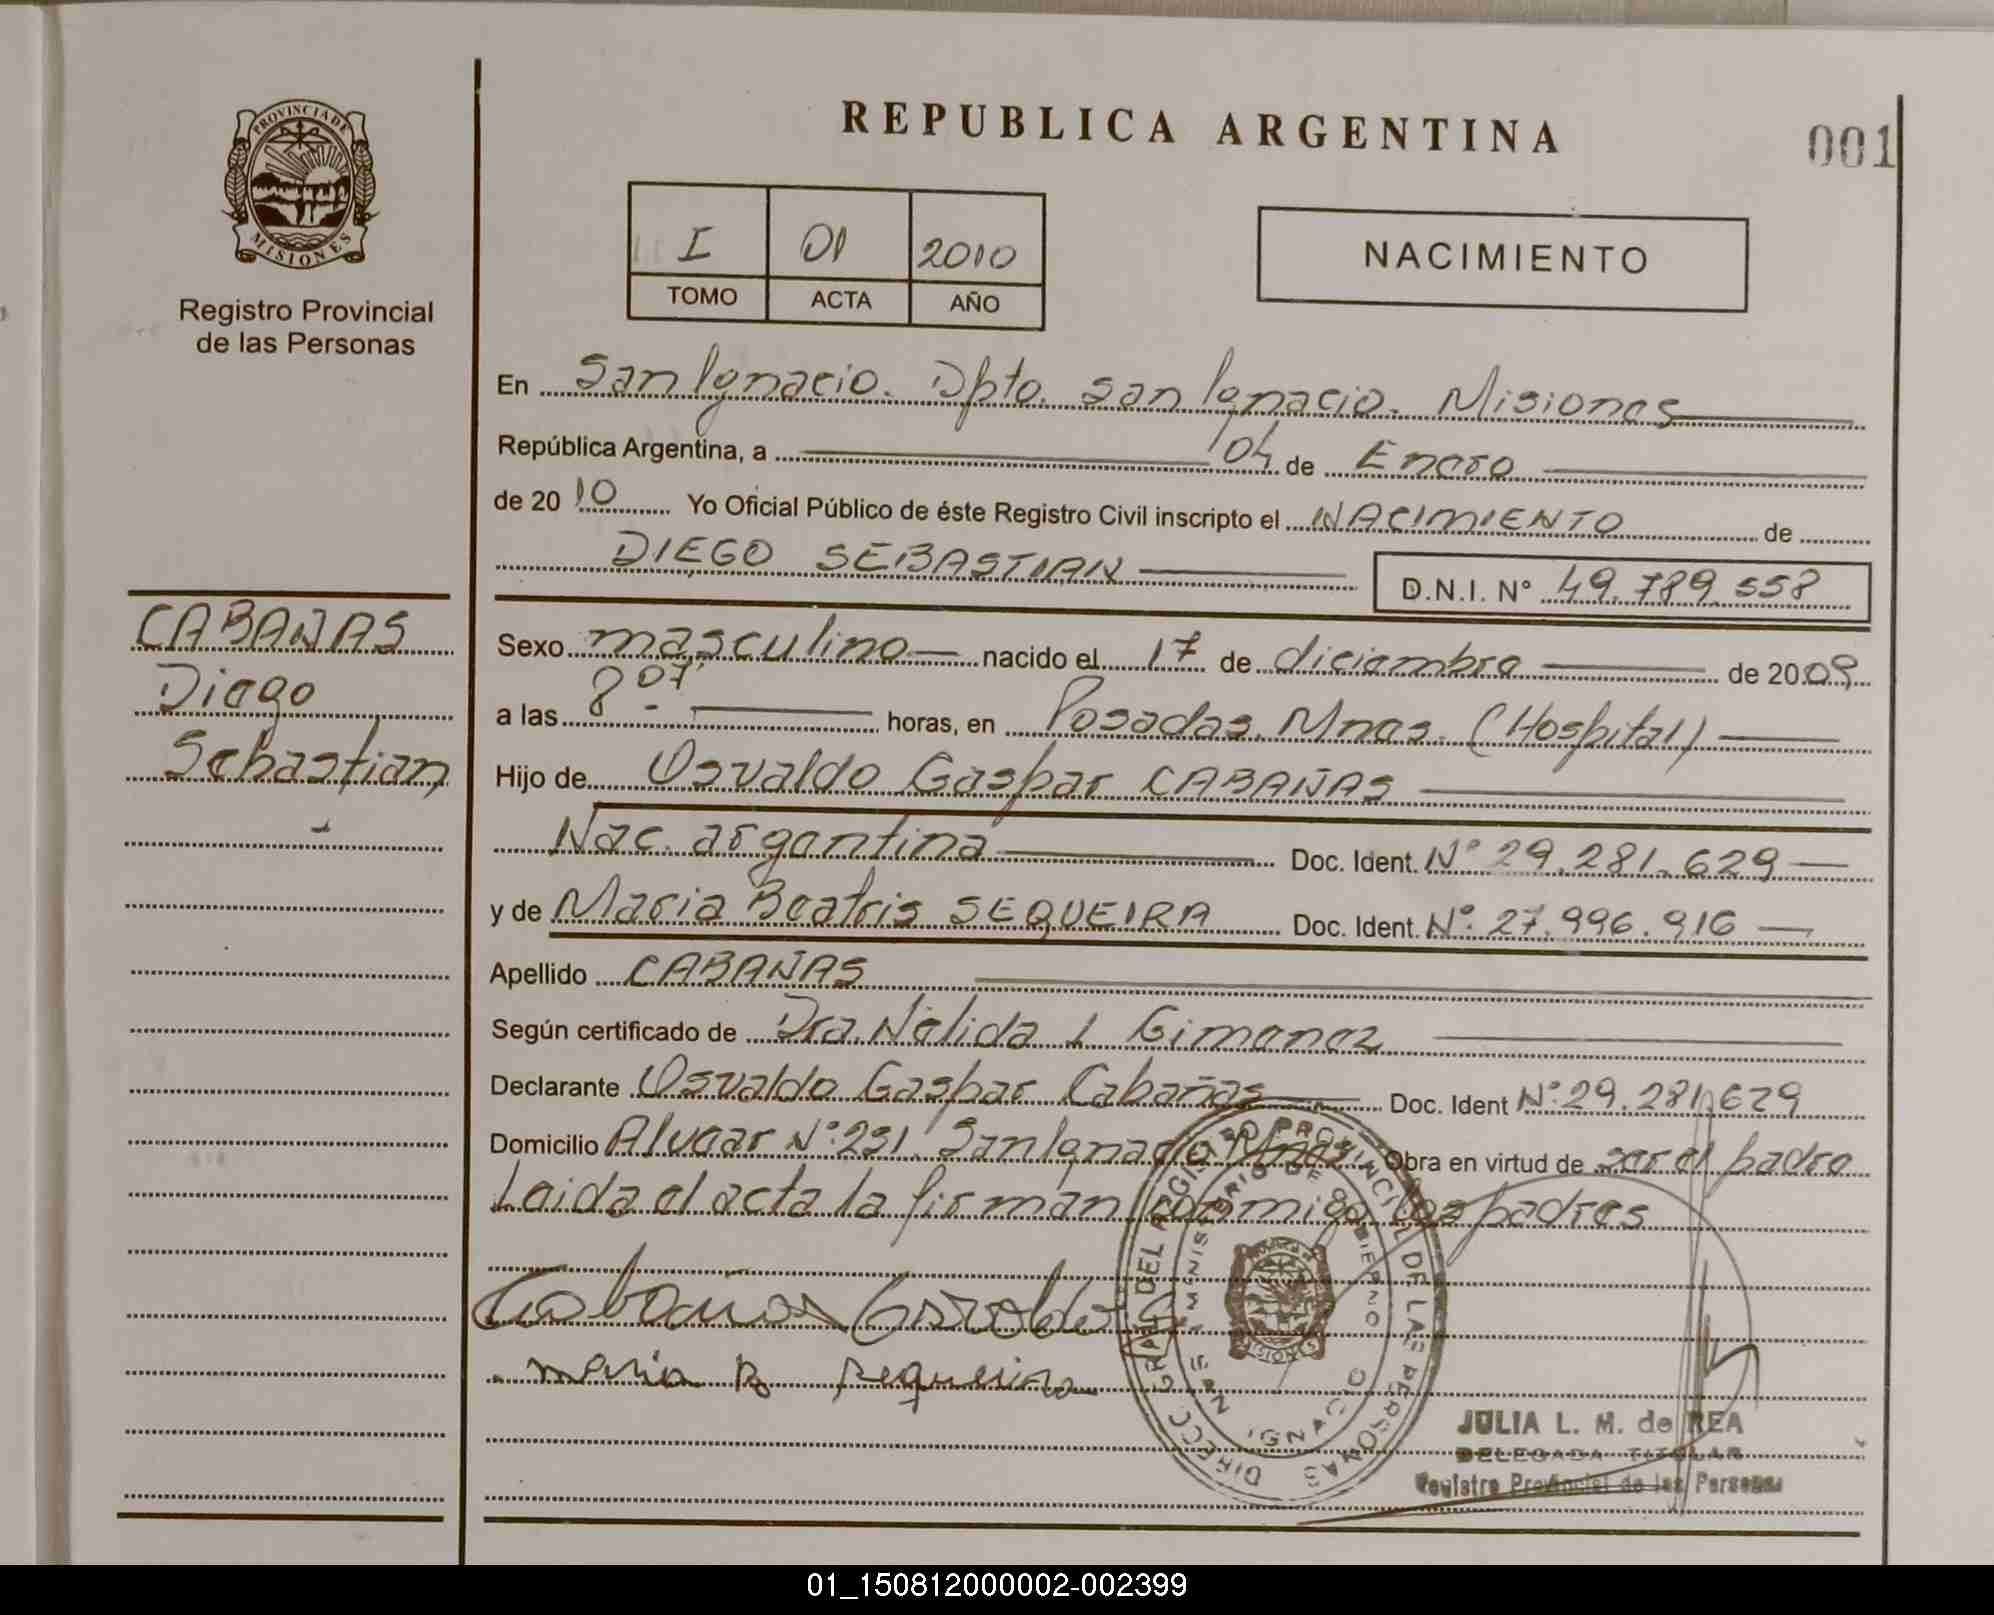 PROVINCIA DE
MISIONES
Registro Provincial
de las Personas
CABAÑAS
Diego
Sebastian
REPUBLICA ARGENTINA
001
I 01 2010
TOMO ACTA AÑO
NACIMIENTO
En San Ignacio. Dpto. San Ignacio. Misiones
República Argentina, a 04 de Enero
de 2010 Yo Oficial Público de éste Registro Civil inscripto el NACIMIENTO de
DIEGO SEBASTIAN D.N.I. N° 49.789.558
Sexo masculino nacido el 17 de diciembre de 2009
a las 8.07 horas, en Posadas. Mnes. (Hospital)
Hijo de Osvaldo Gaspar CABAÑAS
Nac. argentina Doc. Ident. N° 29.281.629
y de Maria Beatris SEQUEIRA Doc. Ident. N°. 27.996.916
Apellido CABAÑAS
Según certificado de Dra. Nélida L Gimenez
Declarante Osvaldo Gaspar Cabañas Doc. Ident N°: 29.281.629
Domicilio Alvear N°: 231. San Ignacio Mnes. Obra en virtud de ser el padre
Leida el acta la firman conmigo los padres
Cabañas Osvaldo G
Maria B sequeira
DIRECC. GRAL. DEL REGISTRO PROVINCIAL DE LAS PERSONAS
MINISTERIO DE GOBIERNO
SAN IGNACIO
MISIONES
JULIA L. M. de REA
DELEGADA TITULAR
Registro Provincial de las Personas
01_150812000002-002399